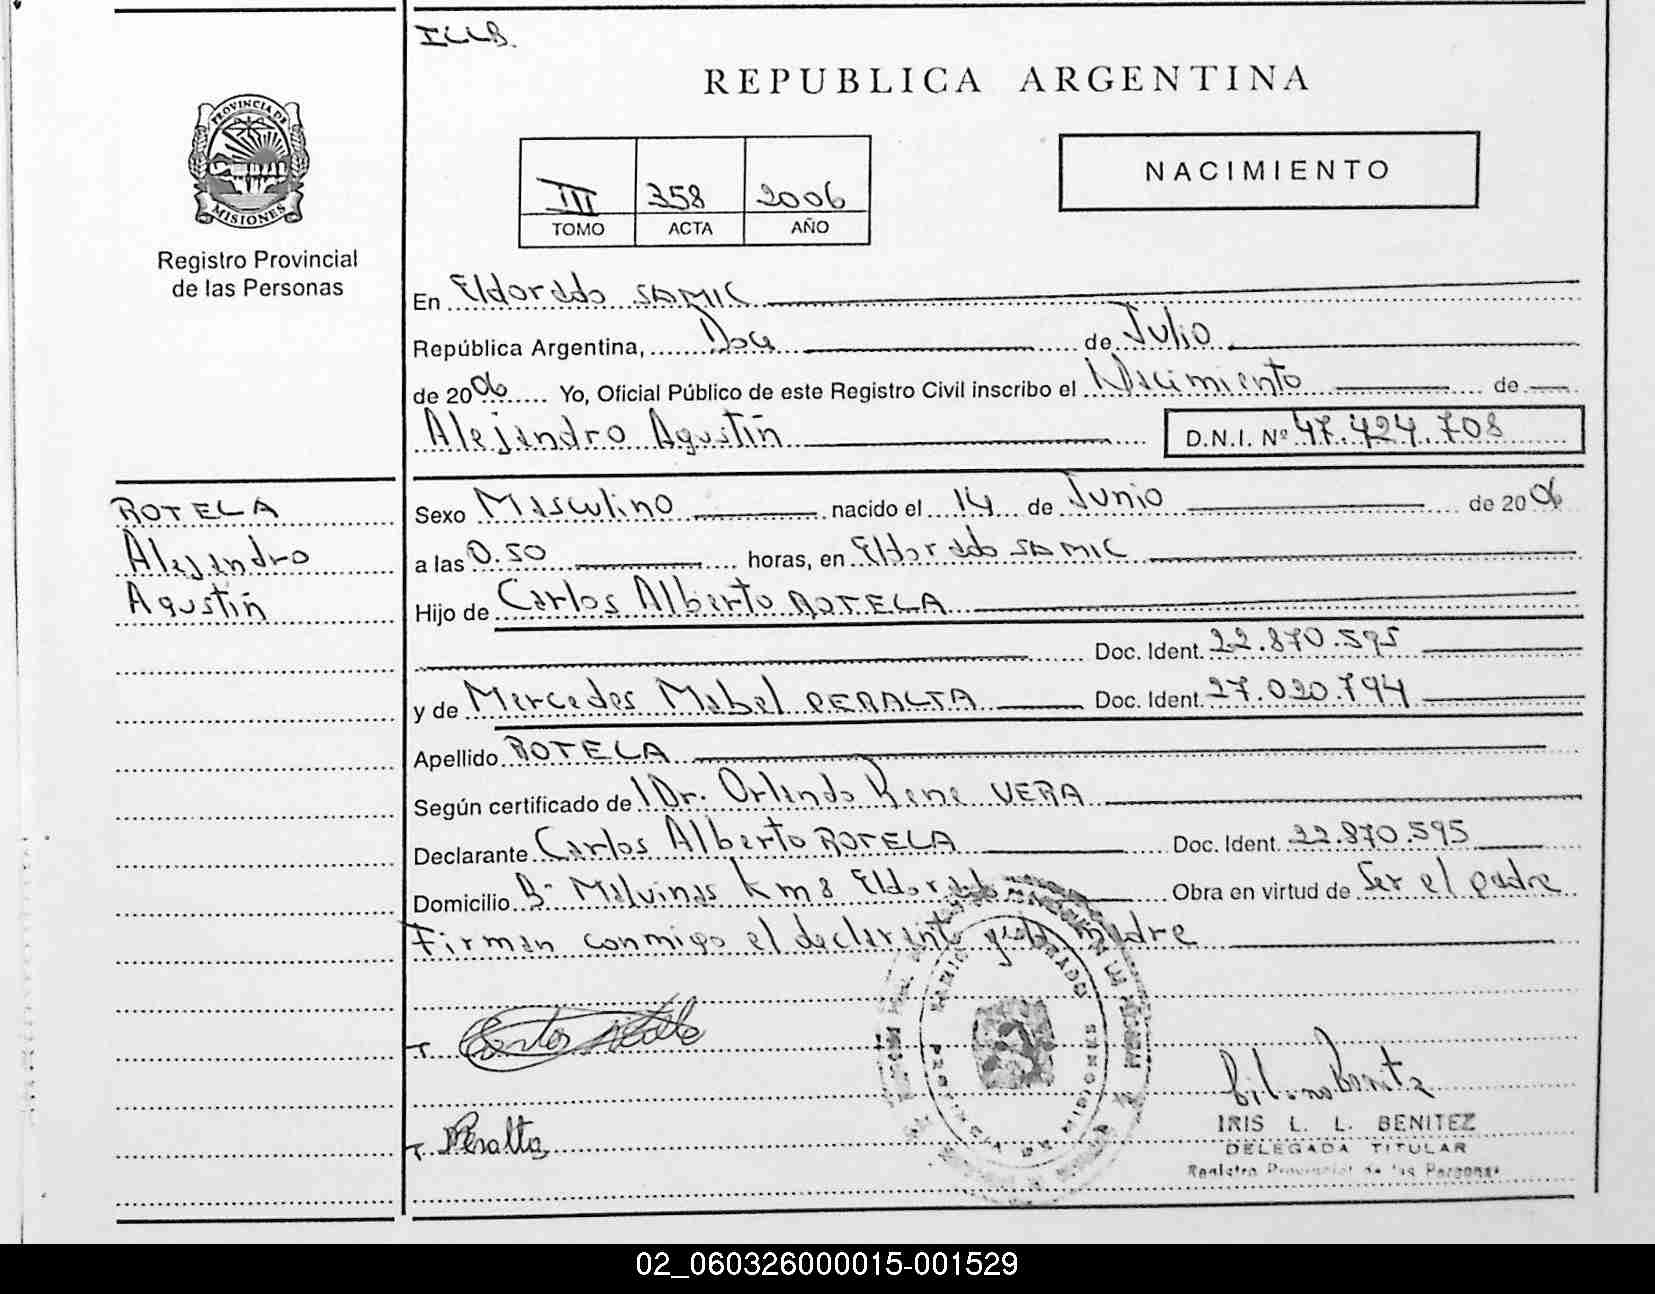 ILLB.
REPUBLICA ARGENTINA
PROVINCIA DE
MISIONES
Registro Provincial
de las Personas
III 358 2006
TOMO ACTA AÑO
NACIMIENTO
En Eldorado SAMIC
República Argentina, Doce de Julio
de 2006 Yo, Oficial Público de este Registro Civil inscribo el Nacimiento de
Alejandro Agustín D.N.I. Nº 47.424.708
ROTELA
Alejandro
Agustín
Sexo Masculino nacido el 14 de Junio de 2006
a las 0.50 horas, en Eldorado SAMIC
Hijo de Carlos Alberto ROTELA
Doc. Ident. 22.870.595
y de Mercedes Mabel PERALTA Doc. Ident. 27.020.794
Apellido ROTELA
Según certificado de Dr. Orlando Rene VERA
Declarante Carlos Alberto ROTELA Doc. Ident. 22.870.595
Domicilio Bº Malvinas Km 8 Eldorado Obra en virtud de Ser el padre
Firman conmigo el declarante y la madre
Peralta
PROVINCIA DE MISIONES
IRIS L. L. BENITEZ
DELEGADA TITULAR
Registro Provincial de las Personas
02_060326000015-001529